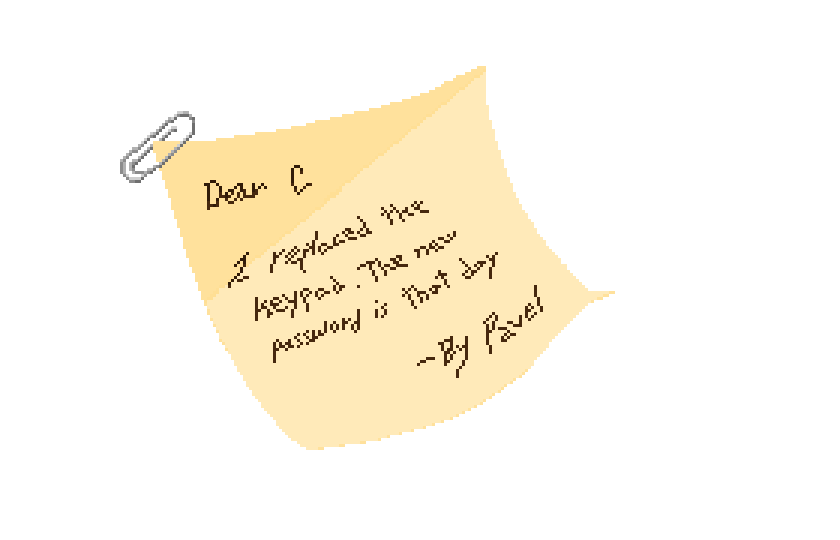 Dear C
I replaced the
keypad. The new
password is that day
-By Pavel